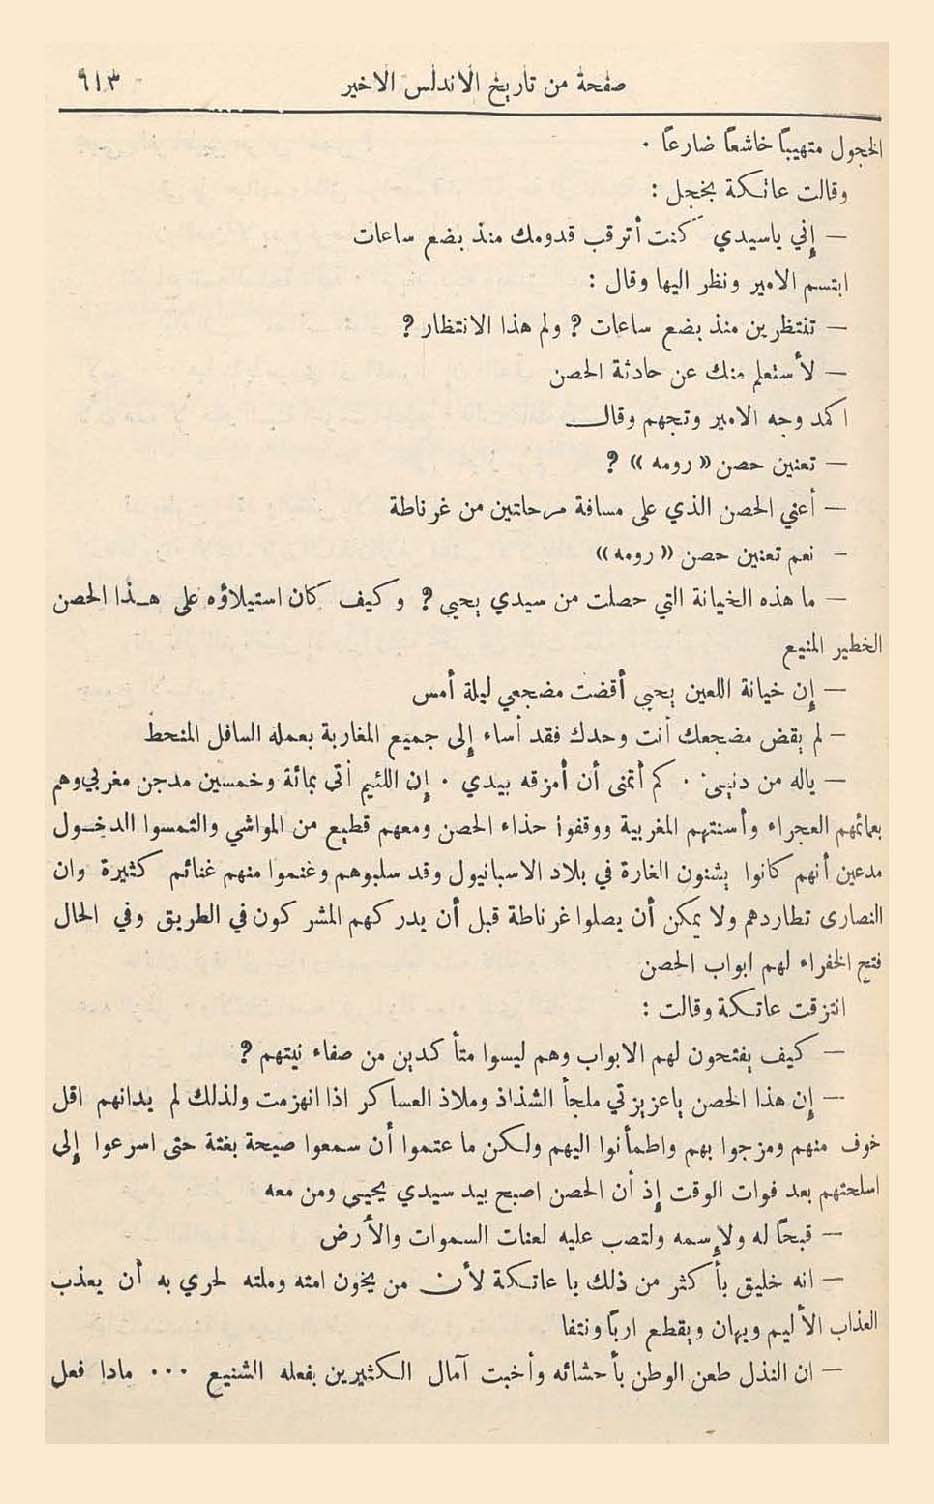 صفحة من تاريخ الاندلس الاخير ٩١٣
الخجول متهيباً خاشعاً ضارعاً .
وقالت عاتكة بخجل :
— إني ياسيدي كنت أترقب قدومك منذ بضع ساعات
ابتسم الامير ونظر اليها وقال :
— تنتظرين منذ بضع ساعات ؟ ولم هذا الانتظار ؟
— لأستعلم منك عن حادثة الحصن
اكمد وجه الامير وتجهم وقال
— تعنين حصن « رومه » ؟
— أعني الحصن الذي على مسافة مرحلتين من غرناطة
— نعم تعنين حصن « رومه »
— ما هذه الخيانة التي حصلت من سيدي يحيى ؟ وكيف كان استيلاؤه على هذا الحصن
الخطير المنيع
— إن خيانة اللعين يحيى أقضت مضجعي ليلة أمس
— لم يقض مضجعك أنت وحدك فقد أساء إلى جميع المغاربة بعمله السافل المنحط
— ياله من دنيء . كم أتمنى أن أمزقه بيدي . إن اللئيم أتى بمائة وخمسين مدجن مغربي وهم
بعمائمهم العجراء وأسنتهم المغربية ووقفوا حذاء الحصن ومعهم قطيع من المواشي والتمسوا الدخول
مدعين أنهم كانوا يشنون الغارة في بلاد الاسبانيول وقد سلبوهم وغنموا منهم غنائم كثيرة وان
النصارى تطاردهم ولا يمكن أن يصلوا غرناطة قبل أن يدركهم المشركون في الطريق وفي الحال
فتح الخفراء لهم ابواب الحصن
انتزقت عاتكة وقالت :
— كيف يفتحون لهم الابواب وهم ليسوا متأكدين من صفاء نيتهم ؟
— إن هذا الحصن ياعزيزتي ملجأ الشذاذ وملاذ العساكر اذا انهزمت ولذلك لم يدانهم اقل
خوف منهم ومزجوا بهم واطمأنوا اليهم ولكن ما عتموا أن سمعوا صيحة بغتة حتى اسرعوا إلى
اسلحتهم بعد فوات الوقت إذ أن الحصن اصبح بيد سيدي يحيى ومن معه
— قبحاً له ولإسمه ولتصب عليه لعنات السموات والأرض
— انه خليق بأكثر من ذلك يا عاتكة لأن من يخون امته وملته لحري به أن يعذب
العذاب الأليم ويهان ويقطع ارباً ونتفا
— ان النذل طعن الوطن بأحشائه وأخبت آمال الكثيرين بفعله الشنيع ... ماذا فعل